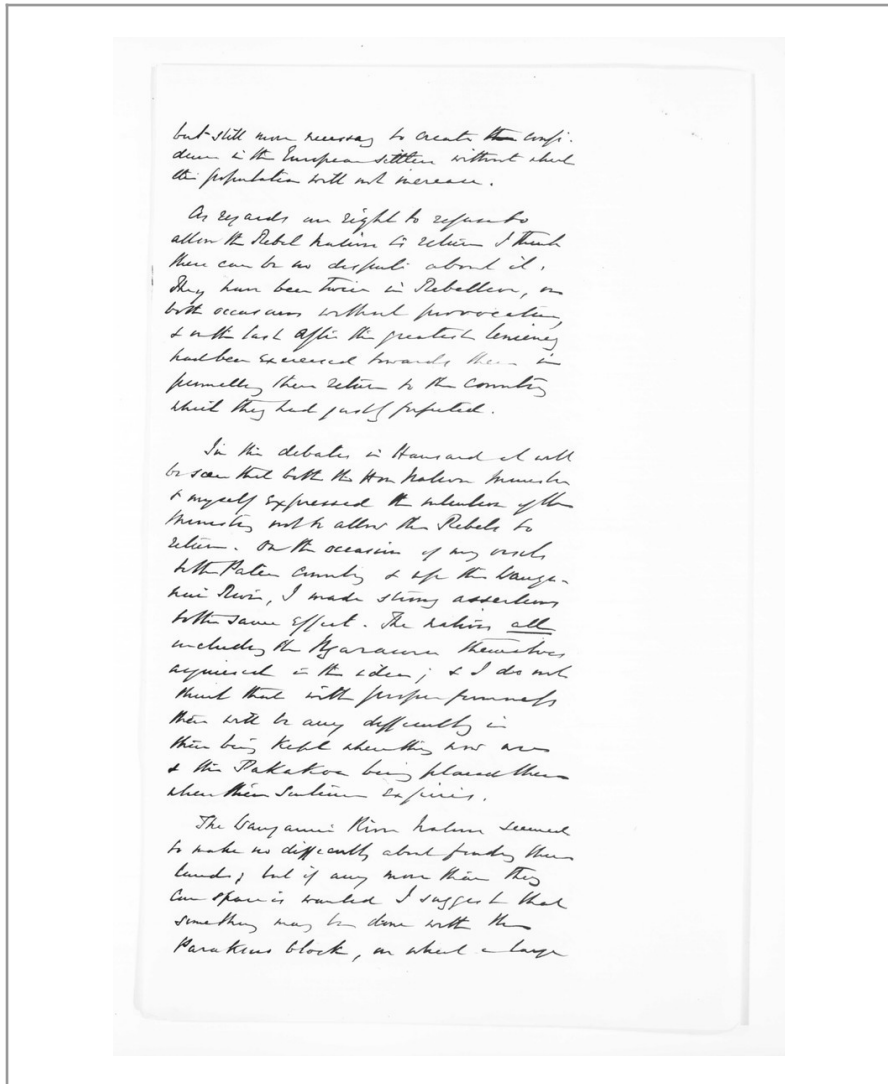 but still more necessary to create the confi-
dence in the European settlers without which
the population will not increase.
As regards our right to refuse to
allow the Rebel Natives to return I think
there can be no dispute about it.
They have been twice in Rebellion, on
both occasions without provocation,
& on the last after the greatest leniency
had been exercised towards them in
permitting their return to the Country
which they had justly forfeited.
In the debates in Hansard it will
be seen that both the Hon Native Minister
& myself expressed the intention of the
Ministry not to allow the Rebels to
return. On the occasion of my visits
to the Patea Country & up the Wanga-
nui River, I made strong assertions
to the same effect. The natives all
including the Ngarauru themselves
acquiesced in the idea; & I do not
think that with proper firmness
there will be any difficulty in
their being kept where they now are
& the Pakakoe being placed there
when their sentence expires.
The Wanganui River Natives seemed
to make no difficulty about finding them
lands; but if any more than they
can spare is wanted I suggest that
something may be done with the
block, on which a large